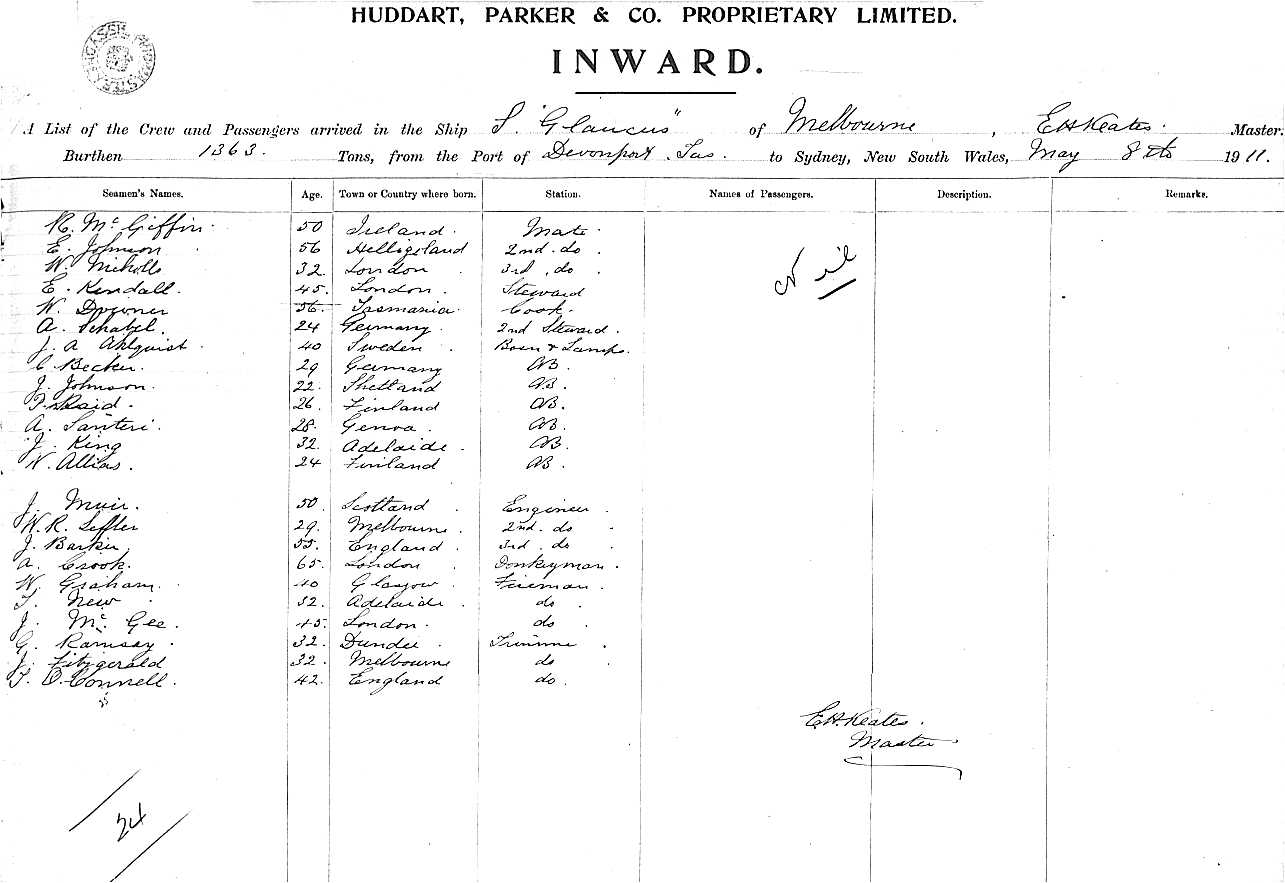 HUDDART, PARKER & CO. PROPRIETARY LIMITED.
INWARD.
A List of the Crew and Passengers arrived in the Ship S "Glaucus" of Melbourne, E H Keates. Master
Burthen 1363. Tons, from the Port of Devonport. Tas. to Sydney, New South Wales, May 8th 1911.
Seamen's Names. Age. Town or Country where born. Station. Names of Passengers. Description. Remarks.
R. McGiffin. 50 Ireland. Mate.
E. Johnson 56 Helligoland 2nd. do.
W. Nicholls 32. London. 3rd. do.
E. Kendall. 45. London. Steward
Nil
W. 56. Tasmania. Cook.
A. Schatzl. 24 Germany. 2nd Steward.
J. A Ahlquist. 40 Sweden. Bosn & Lamps.
C Becker. 29 Germany AB.
J. Johnson. 22. Shetland AB.
Raid. 26. Finland AB.
A. Santeri. 28. Genoa. AB.
J. King 32. Adelaide. AB.
N. Allias. 24 Finland AB.
J. Muir. 50. Scotland Engineer.
W. R. 29. Melbourne. 2nd. do.
J. Barker 55. England. 3rd. do.
A. Crook. 65. London. Donkyman.
W. Graham. 40 Glasgow. Fireman.
T. New. 32. Adelaide. do.
J. McGee. 45. London. do.
G. Ramsay. 32. Dundee. Trimme.
J. Fitzgerald 32. Melbourne do.
T. O.Connell. 42. England do.
E H. Keates.
Master
24